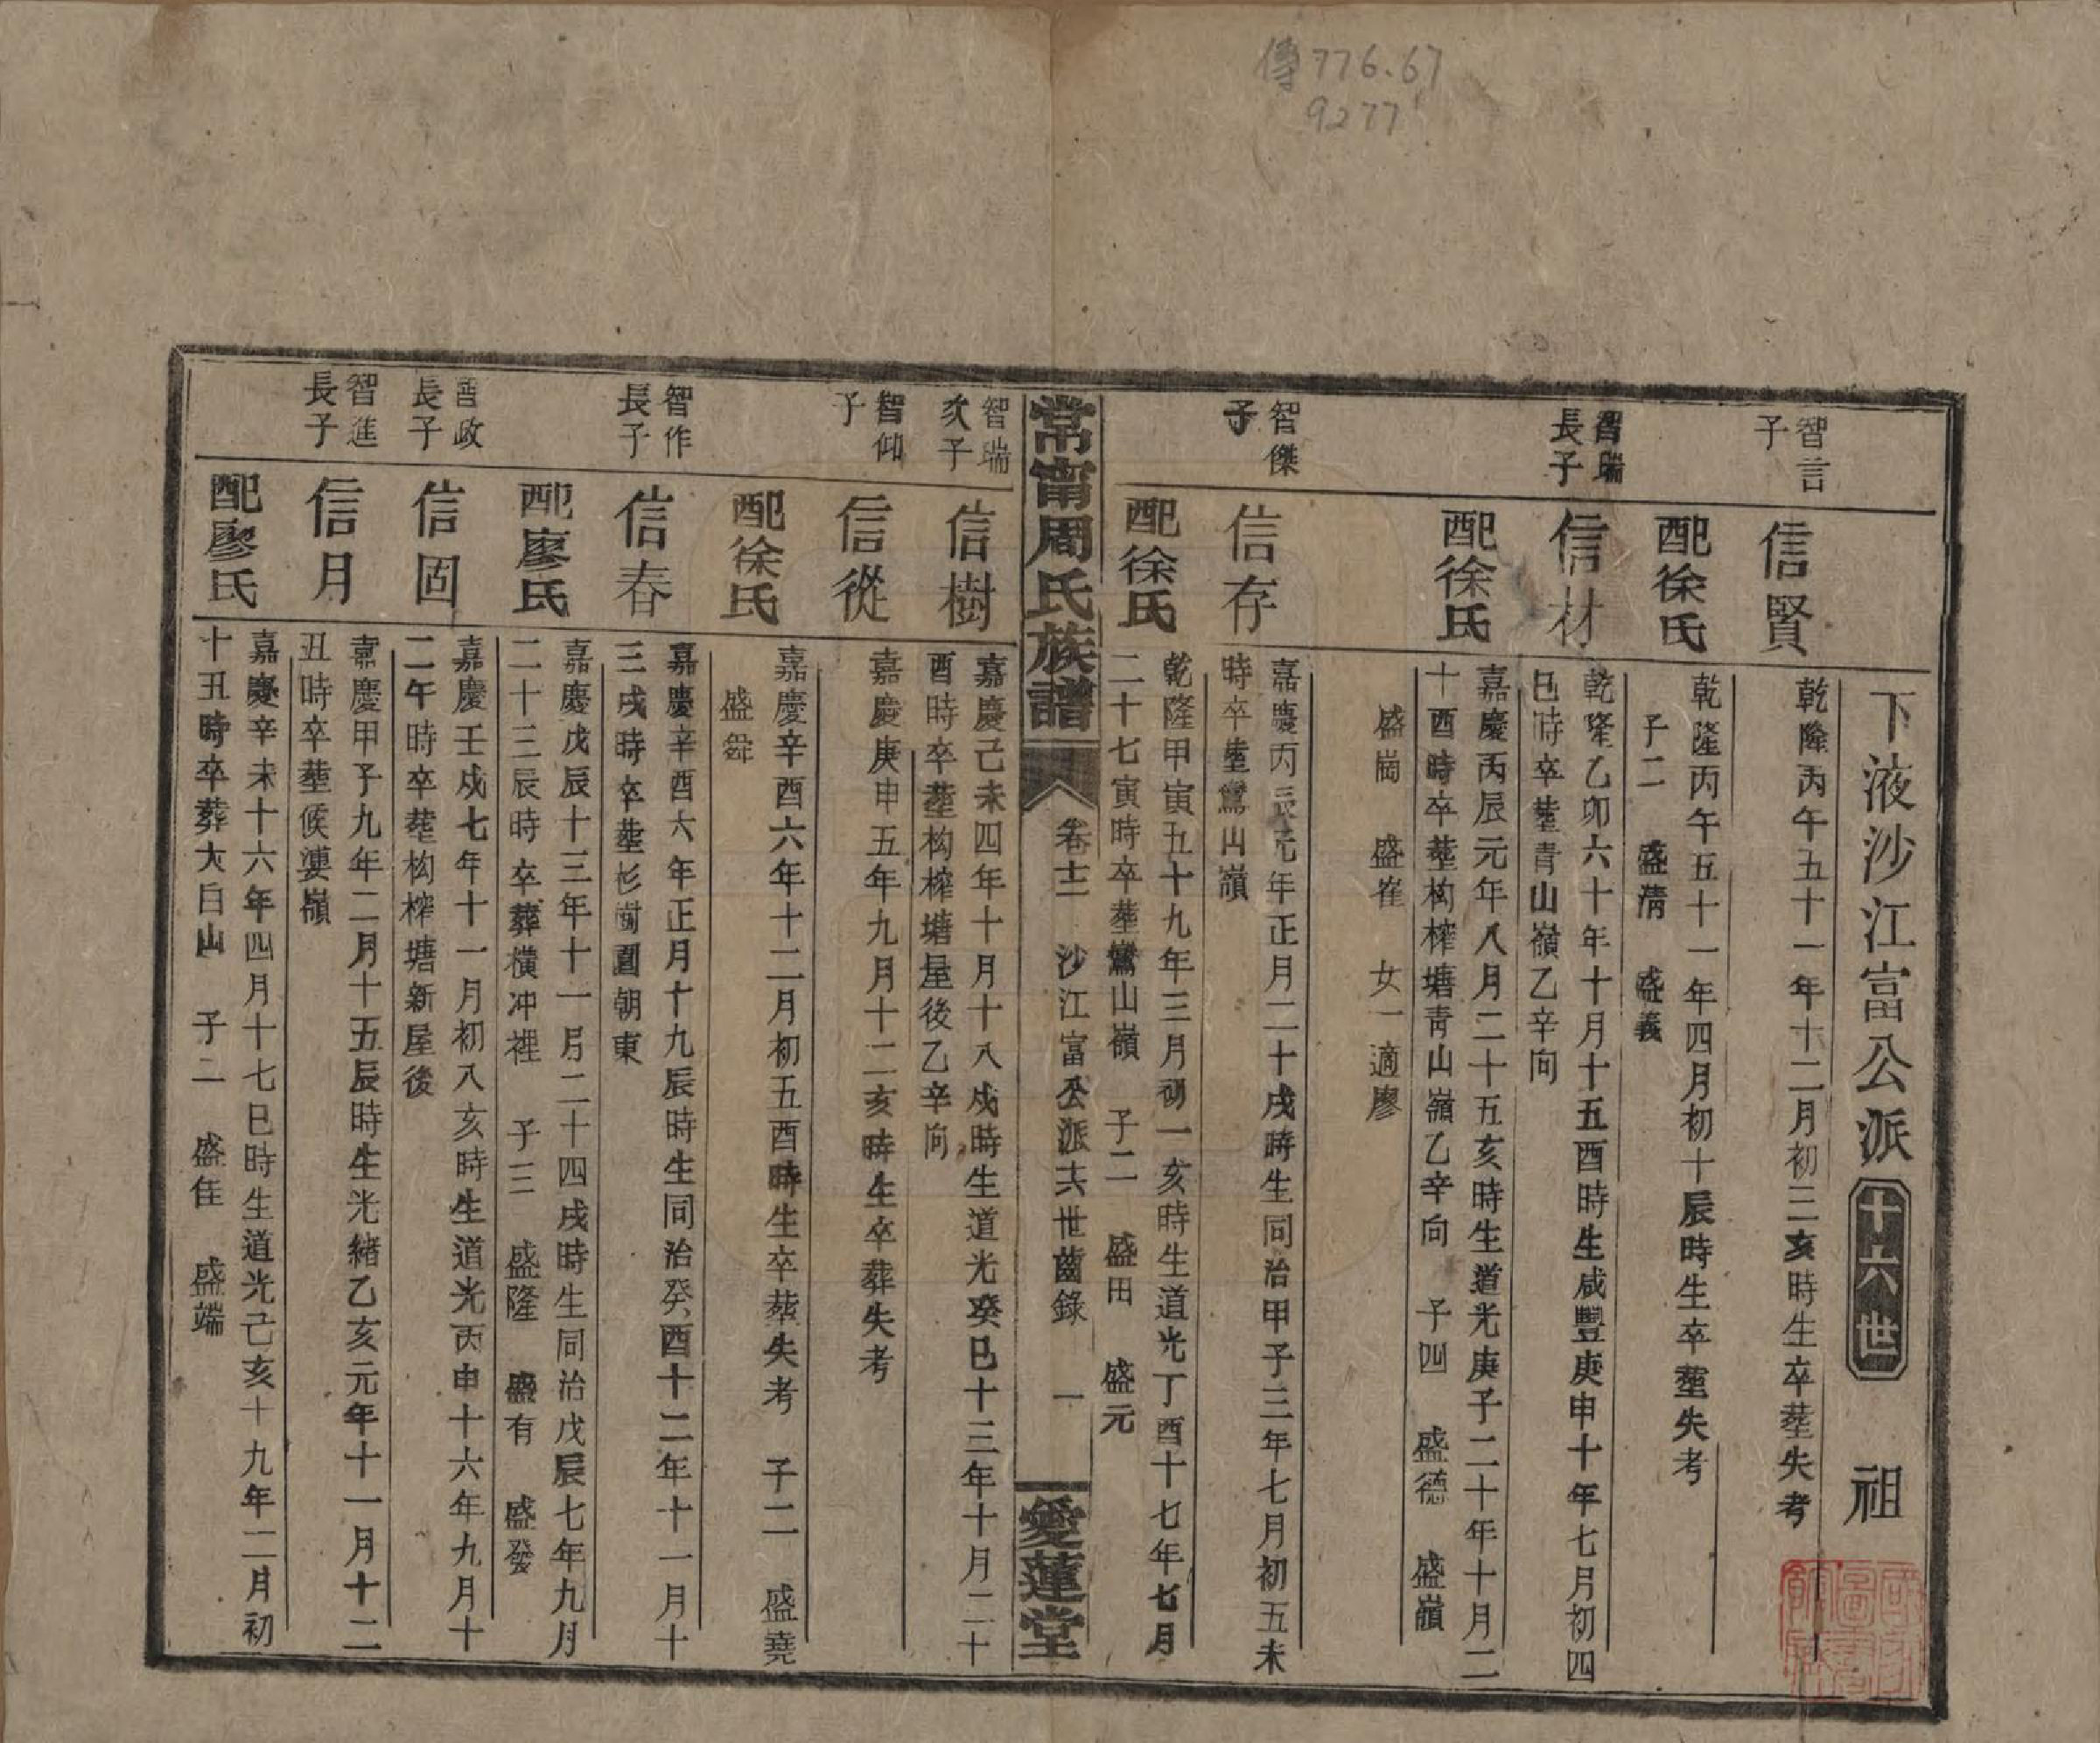 傳776.67
9277
下液沙江富公派 十六世 祖
智言子
信賢
乾隆丙午五十一年十二月初三亥時生卒塟失考
配徐氏
乾隆丙午五十一年四月初十辰時生卒塟失考
子二 盛清 盛義
智瑞長子
信材
乾隆乙卯六十年十月十五酉時生咸豐庚申十年七月初四
巳時卒塟青山嶺乙辛向
配徐氏
嘉慶丙辰元年八月二十五亥時生道光庚子二十年十月二
十酉時卒塟构榨塘青山嶺乙辛向 子四 盛德 盛嶺
盛崗 盛崔 女一適廖
智傑子
信存
嘉慶丙辰元年正月二十戌時生同治甲子三年七月初五未
時卒塟鸞山嶺
配徐氏
乾隆甲寅五十九年三月初一亥時生道光丁酉十七年七月
二十七寅時卒塟鸞山嶺 子二 盛田 盛元
常甯周氏族譜 卷十二 沙江富公派十六世齒錄 一 愛蓮堂
智瑞次子
信樹
嘉慶己未四年十月十八戌時生道光癸巳十三年十月二十
酉時卒塟构榨塘屋後乙辛向
智仰子
信從
嘉慶庚申五年九月十二亥時生卒葬失考
配徐氏
嘉慶辛酉六年十二月初五酉時生卒葬失考 子二 盛堯
盛舜
智作長子
信春
嘉慶辛酉六年正月十九辰時生同治癸酉十二年十一月十
三戌時卒塟杉樹園朝東
配廖氏
嘉慶戊辰十三年十一月二十四戌時生同治戊辰七年九月
二十三辰時卒葬橫冲裡 子三 盛隆 盛有 盛發
智政長子
信固
嘉慶壬戌七年十一月初八亥時生道光丙申十六年九月十
二午時卒塟构榨塘新屋後
智進長子
信月
嘉慶甲子九年二月十五辰時生光緒乙亥元年十一月十二
丑時卒塟候嶺
配廖氏
嘉慶辛未十六年四月十七巳時生道光己亥十九年二月初
十丑時卒葬大白山 子二 盛隹 盛端